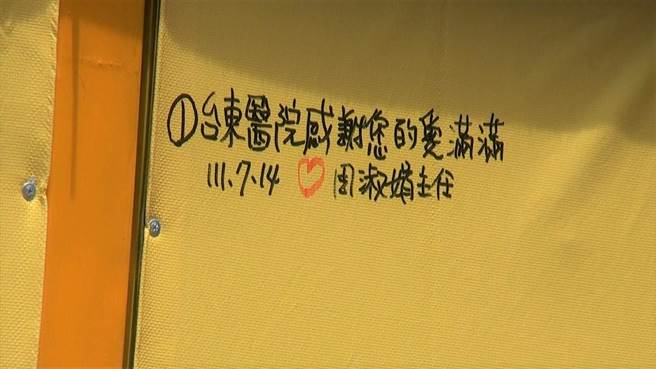 ①台東醫院感謝您的愛滿滿
111.7.14 ♡ 周淑婧主任